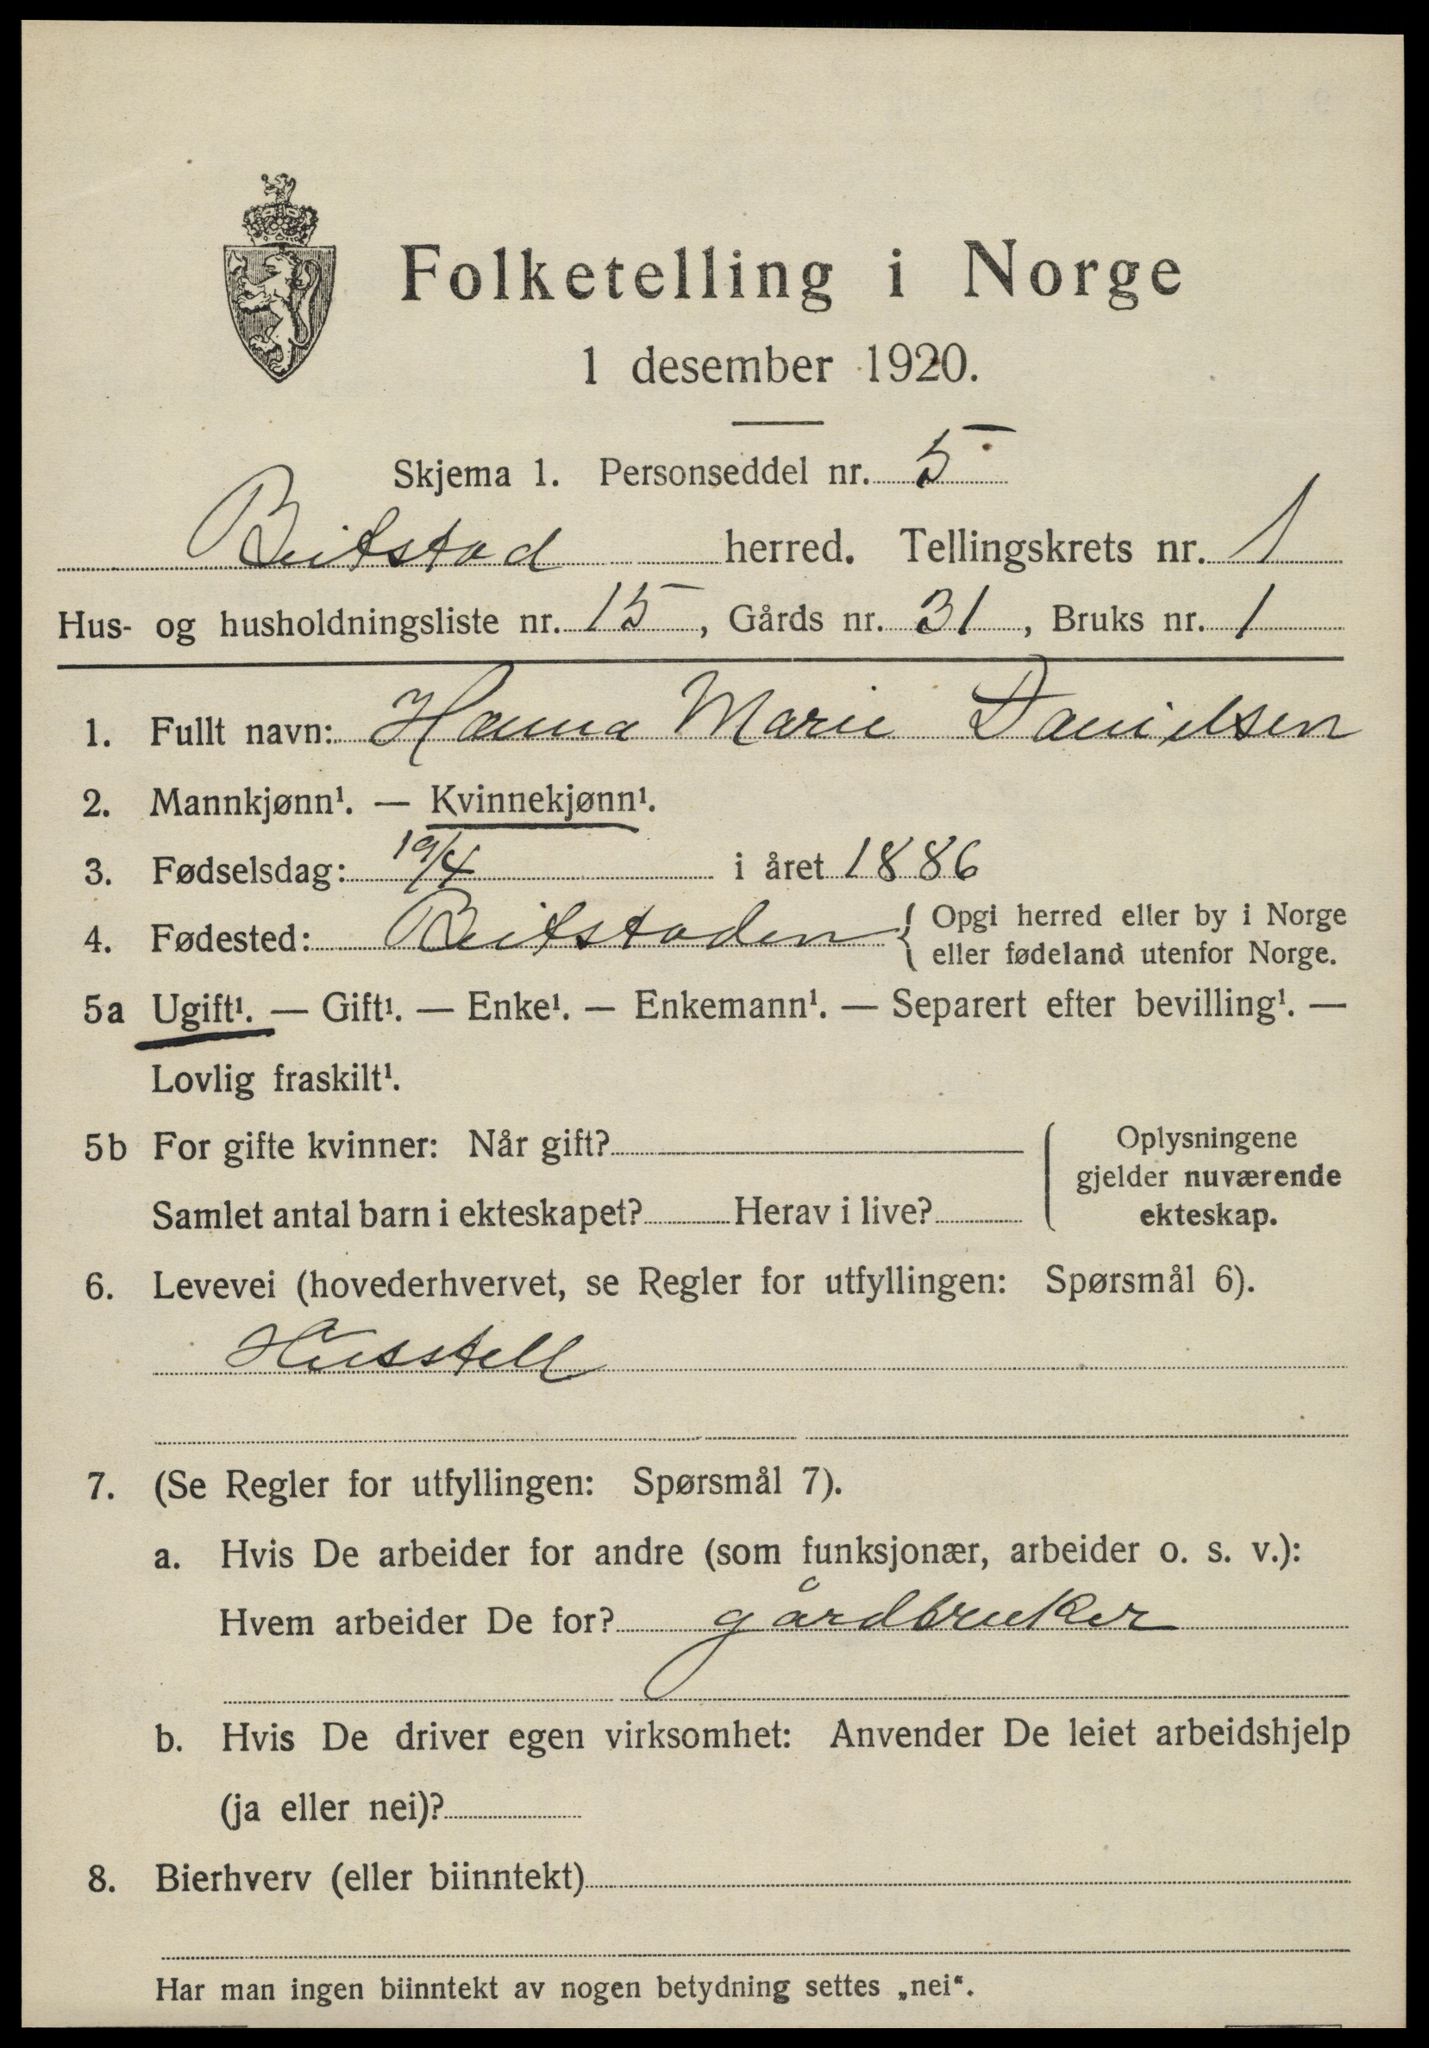 Folketelling i Norge
1 desember 1920.
Skjema 1. Personseddel nr. 5
Beitstad herred. Tellingskrets nr. 1
Hus- og husholdningsliste nr. 15, Gårds nr. 31, Bruks nr. 1
1. Fullt navn: Hanna Marie Danielsen
2. Mannkjønn¹. — Kvinnekjønn¹.
3. Fødselsdag: 19/4 i året 1886
4. Fødested: Beitstaden { Opgi herred eller by i Norge
eller fødeland utenfor Norge.
5a Ugift¹. — Gift¹. — Enke¹. — Enkemann¹. — Separert efter bevilling¹. —
Lovlig fraskilt¹.
5b For gifte kvinner: Når gift?
Samlet antal barn i ekteskapet? Herav i live?
Oplysningene
gjelder nuværende
ekteskap.
6. Levevei (hovederhvervet, se Regler for utfyllingen: Spørsmål 6).
Husstell
7. (Se Regler for utfyllingen: Spørsmål 7).
a. Hvis De arbeider for andre (som funksjonær, arbeider o. s. v.):
Hvem arbeider De for? gårdbruker
b. Hvis De driver egen virksomhet: Anvender De leiet arbeidshjelp
(ja eller nei)?
8. Bierhverv (eller biinntekt)
Har man ingen biinntekt av nogen betydning settes „nei“.